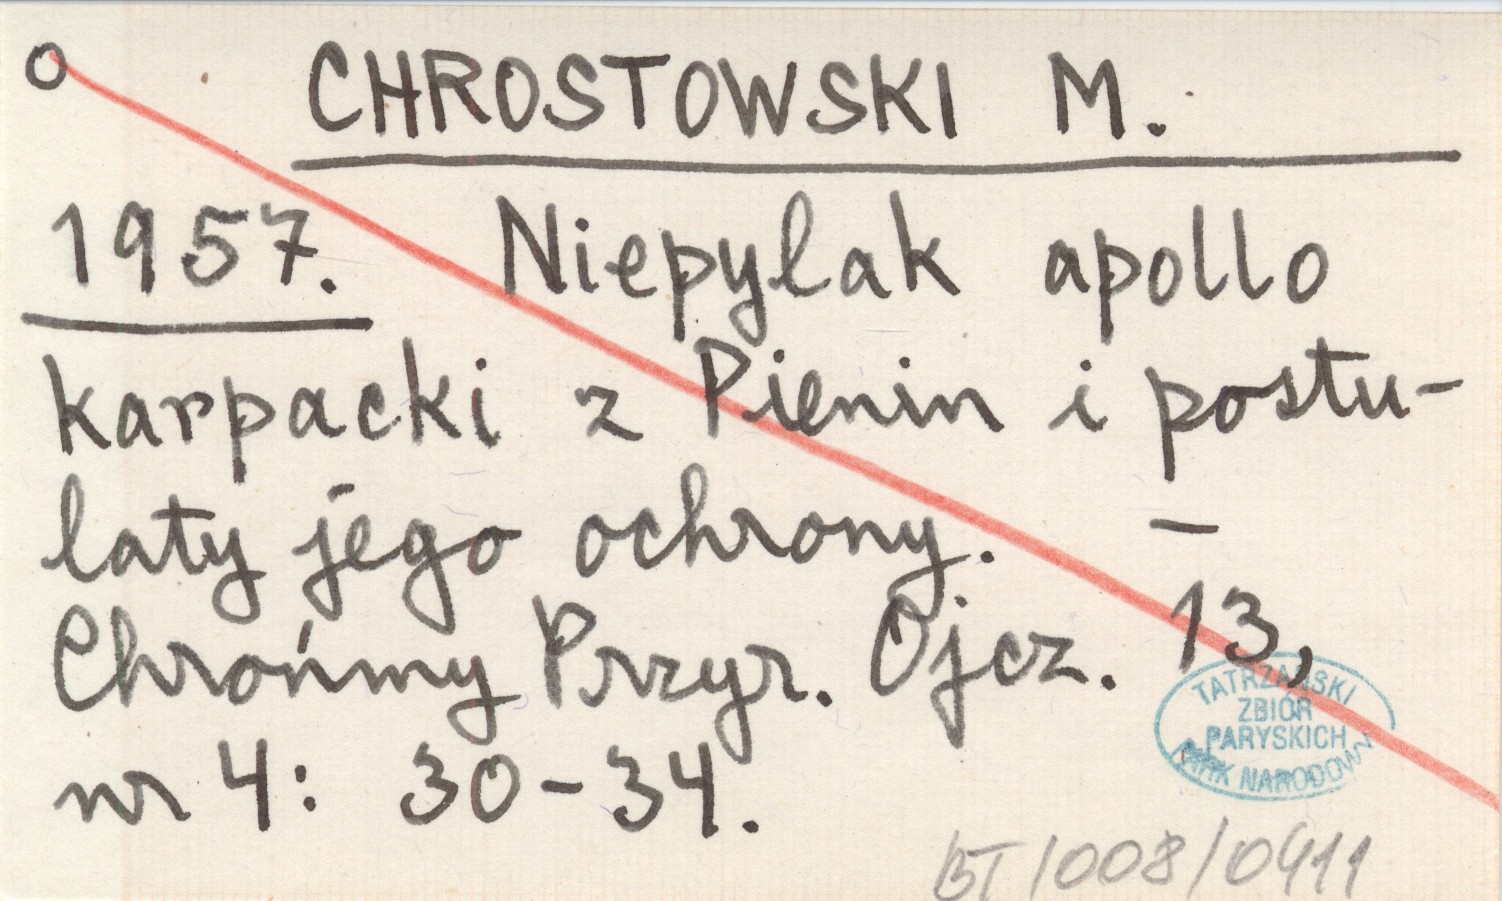 o CHROSTOWSKI M.
1957. Niepylak apollo
karpacki z Pienin i postu-
laty jego ochrony. –
Chrońmy Przyr. Ojcz. 13,
nr 4: 30-34.
TATRZAŃSKI
ZBIÓR
PARYSKICH
PARK NARODOWY
BT/008/0411